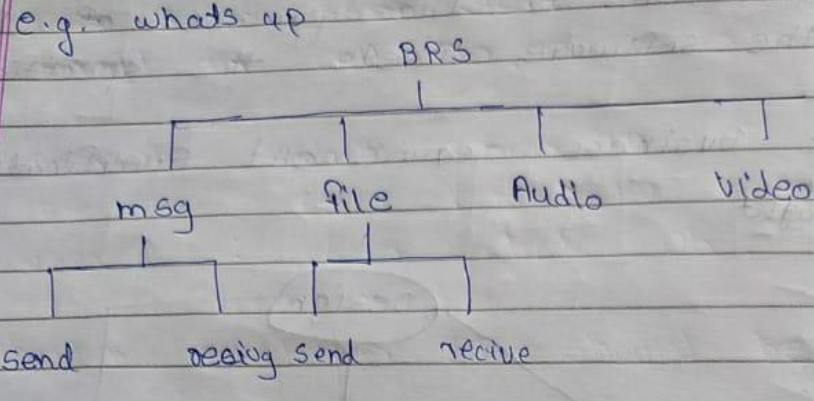 e.g. whats up
BRS
msg file Audio Video
send send recive